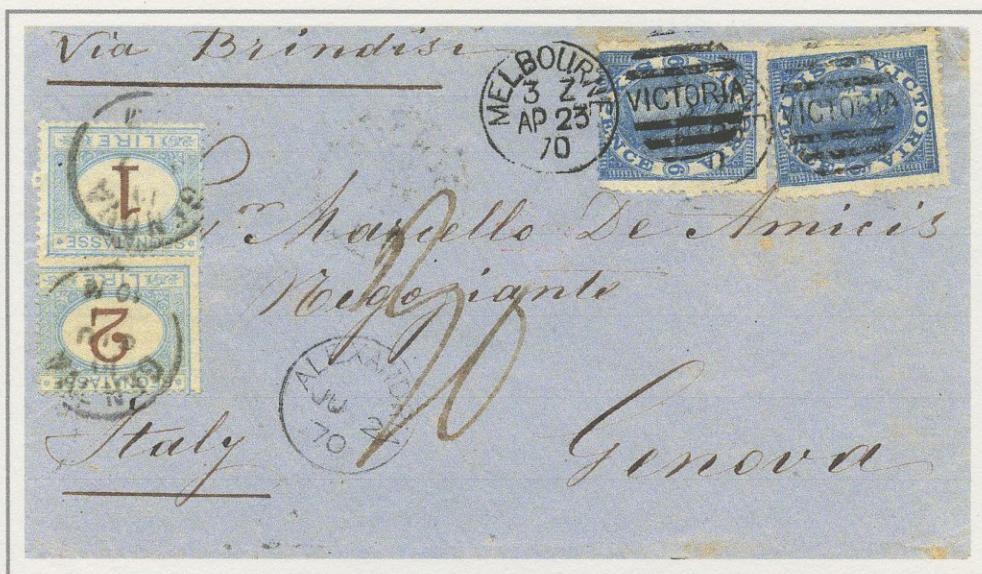 Via Brindisi
MELBOURNE
3 Z
AP 23
70
VICTORIA
VICTORIA
VICTORIA
LIRE
1
SEGNATASSE
2
SEGNATASSE
Sigr Mariello De Amicis
Negoziante
ALEXANDRIA
JU 2
70
Italy
Genova